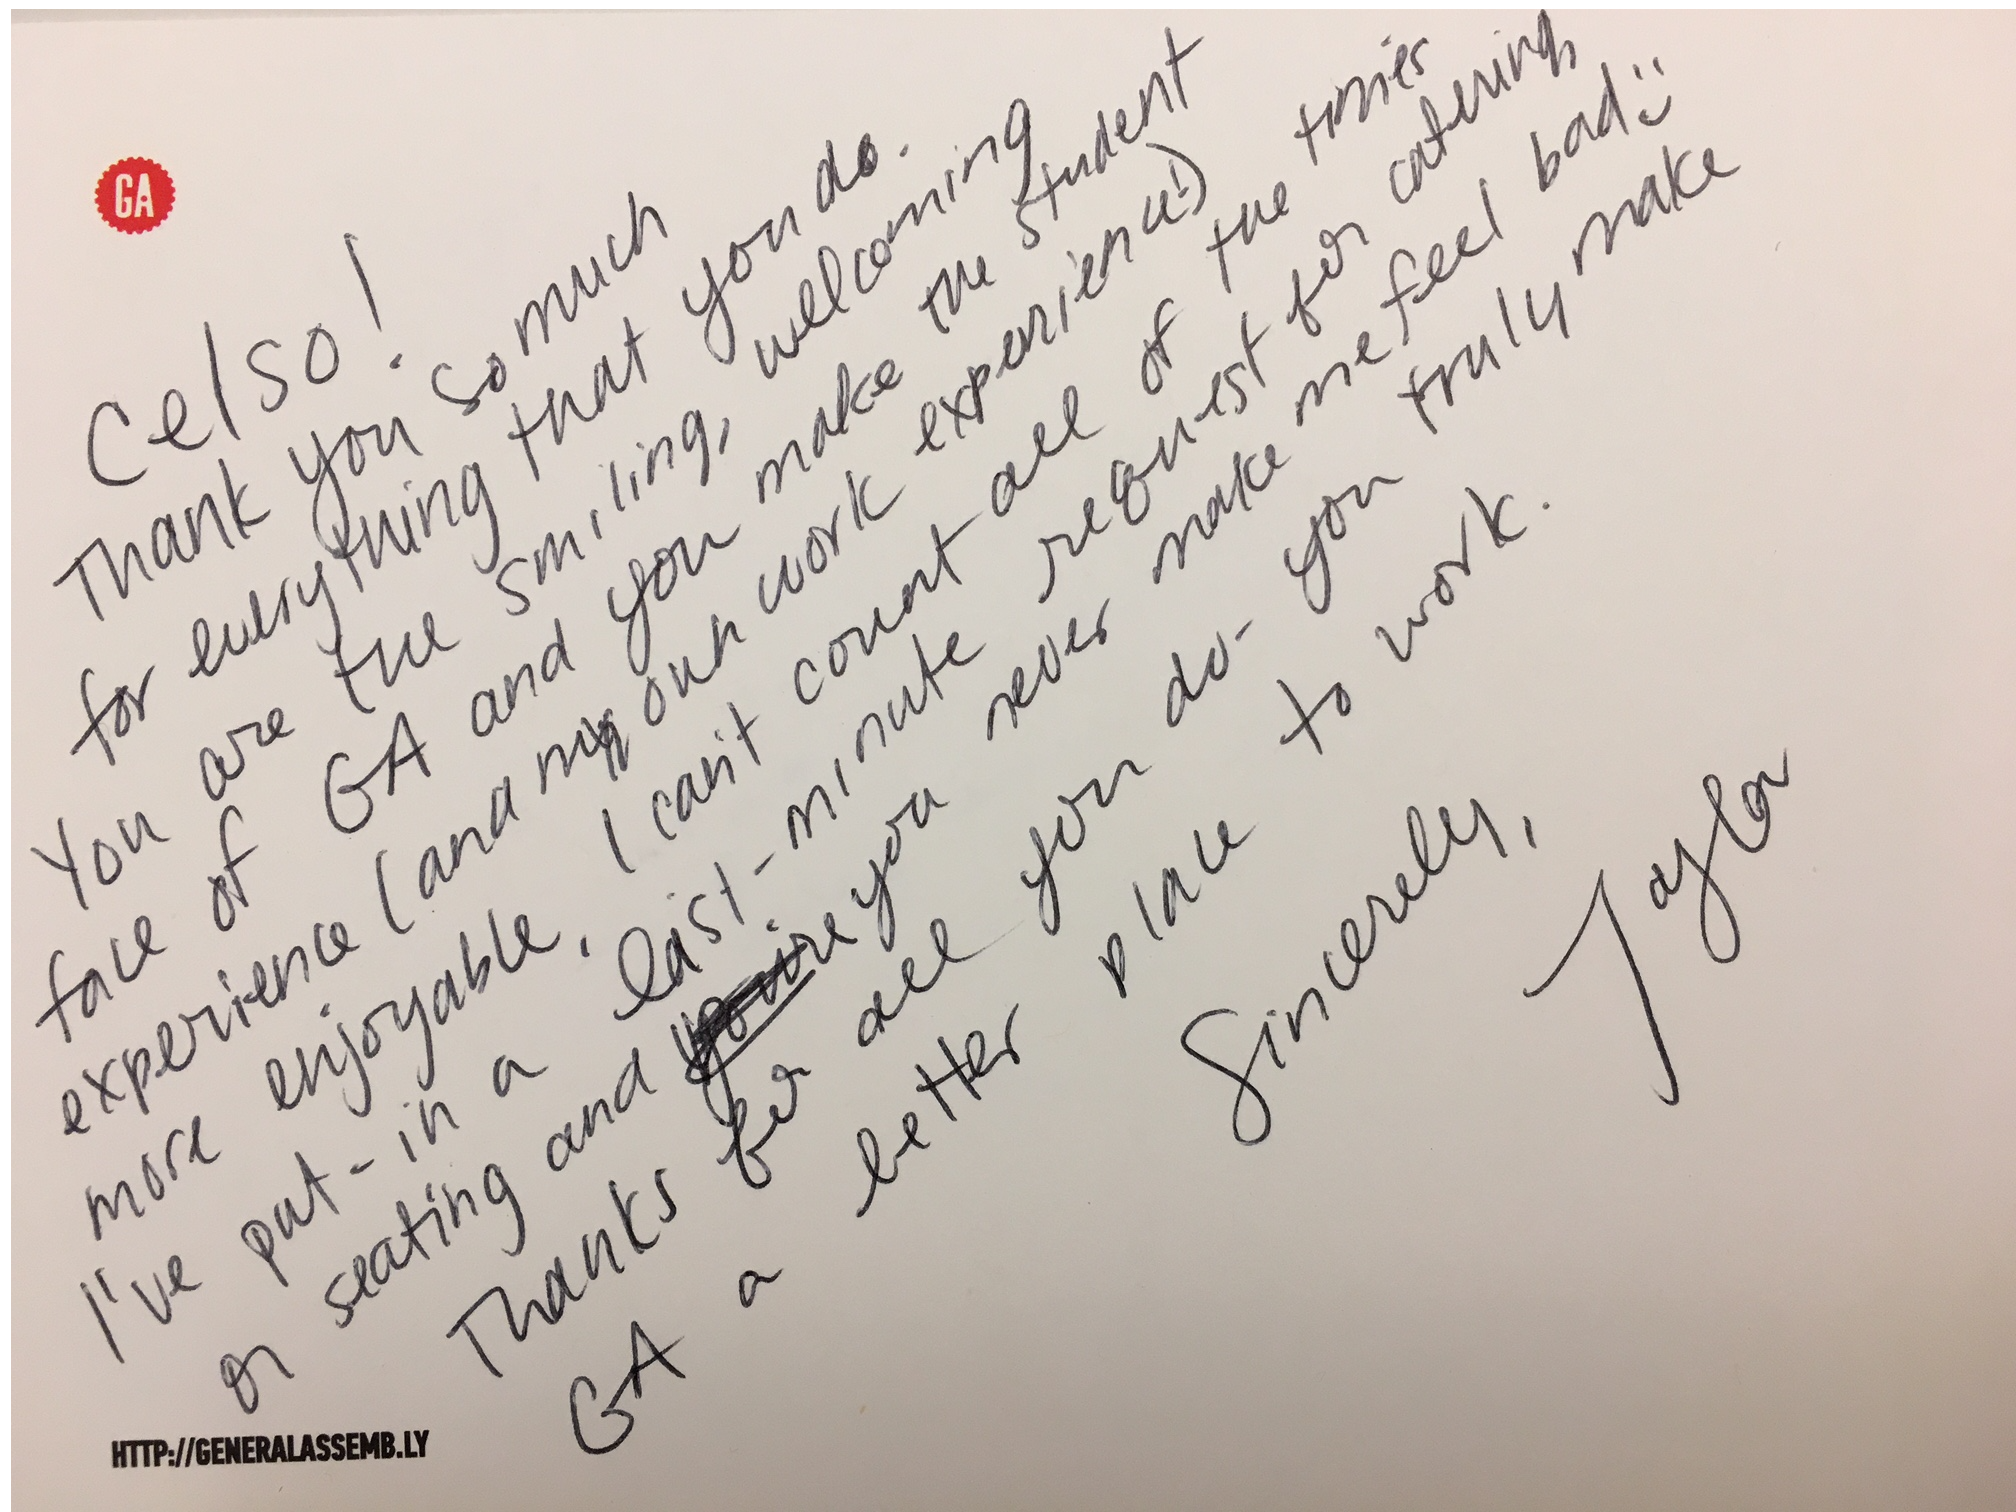 GA
Celso!
Thank you so much
for everything that you do.
You are the smiling, welcoming
face of GA and you make the student
experience (and my own work experience!)
more enjoyable. I can't count all of the times
I've put-in a last-minute request for catering
or seating and you never make me feel bad :)
Thanks for all you do - you truly make
GA a better place to work.
Sincerely,
Taylor
HTTP://GENERALASSEMB.LY